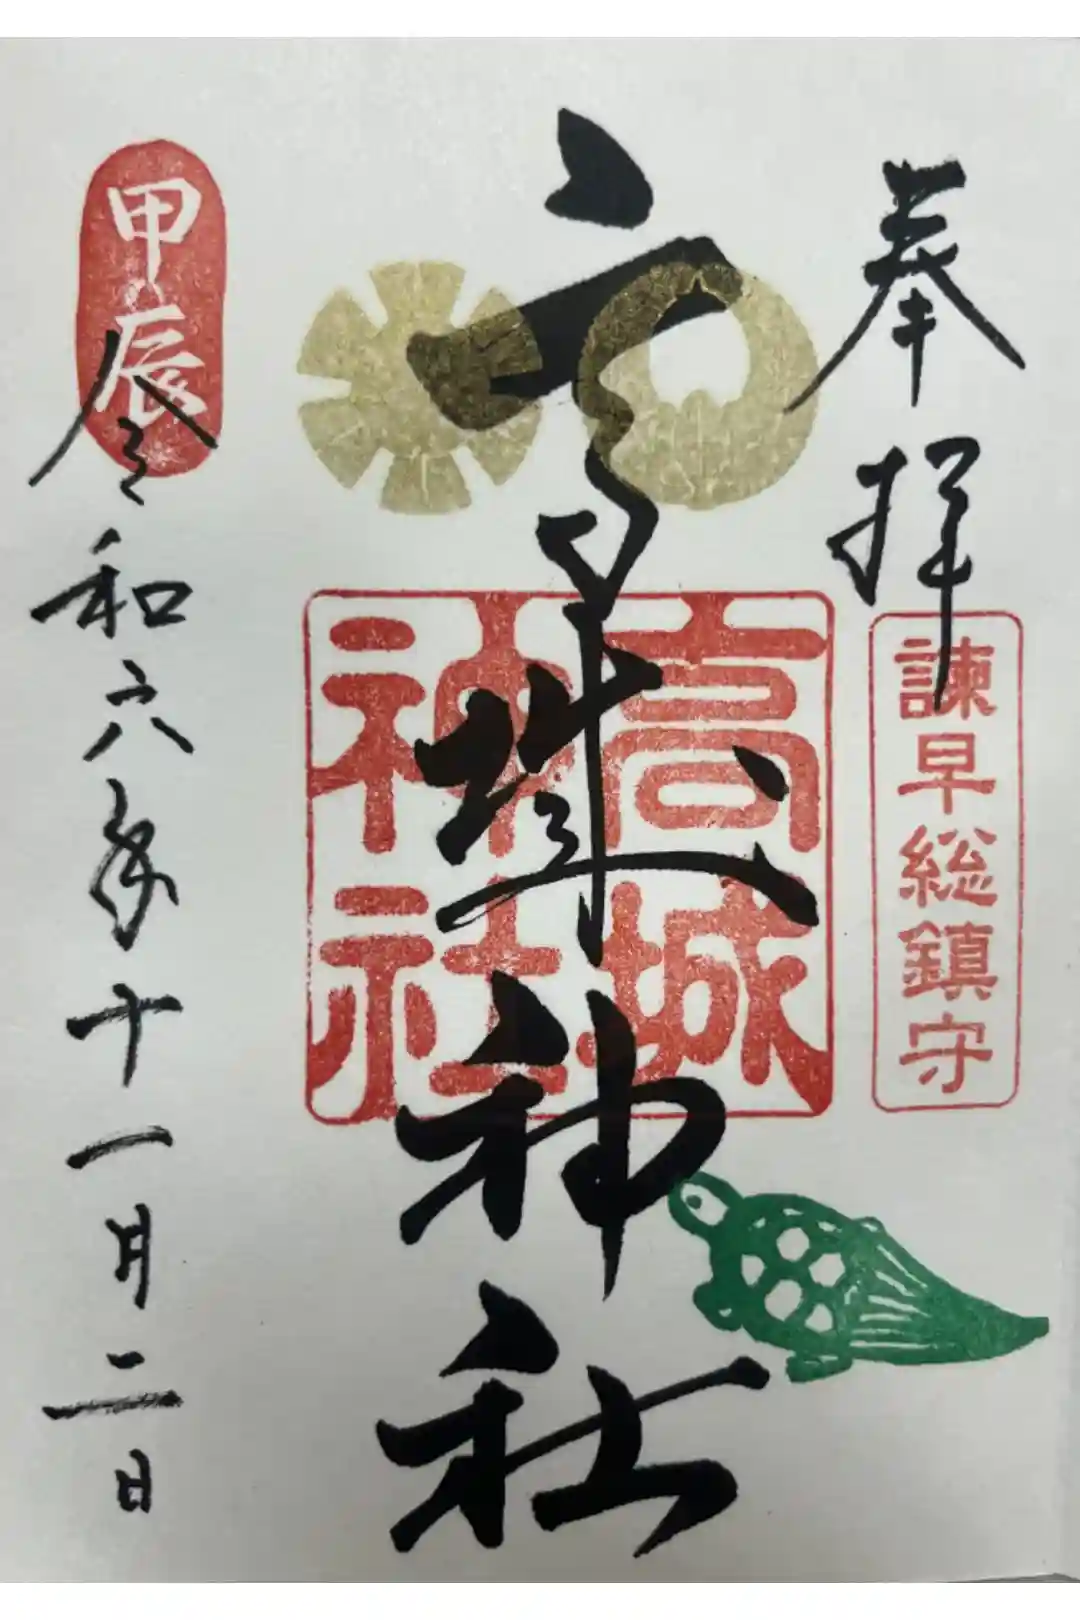 奉拝
諫早総鎮守
高城神社
高城
神社
甲辰
令和六年十一月二日